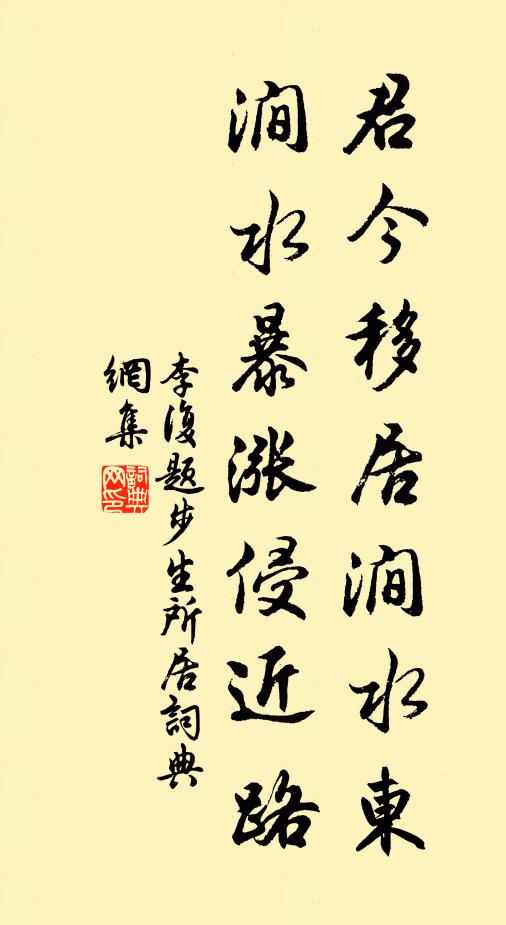 君今移居涧水東
涧水暴漲侵近路
李復題步生所居詞典
網集
詞典網印